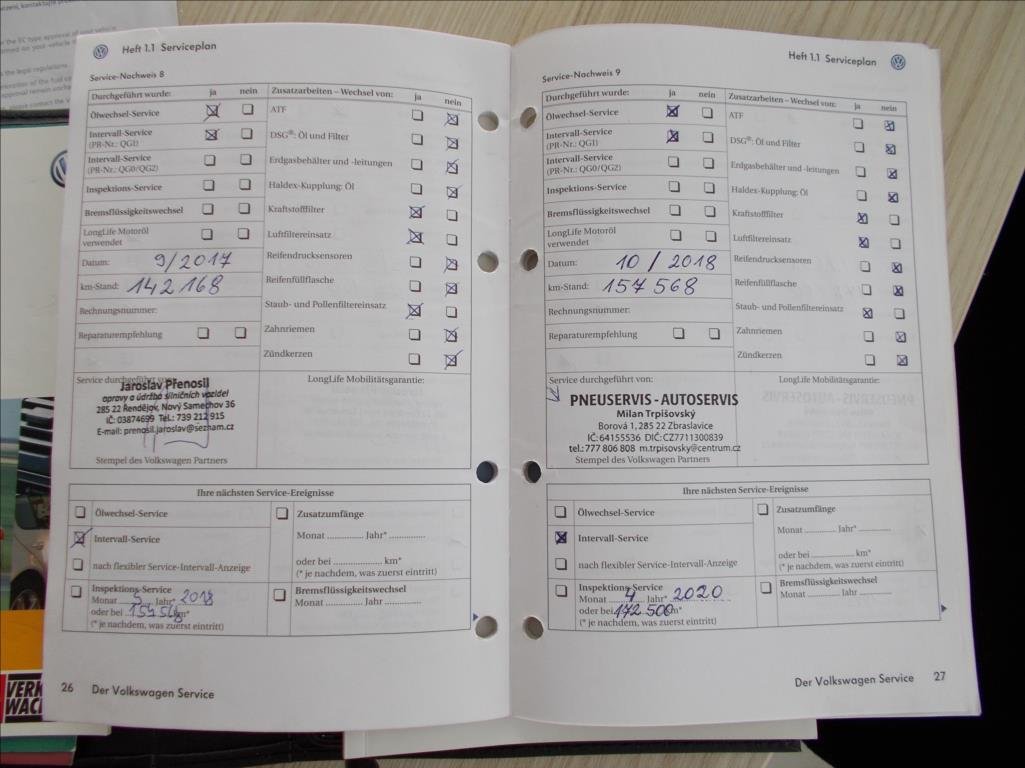 Heft 1.1 Serviceplan
Service-Nachweis 8
Durchgeführt wurde: ja nein
Ölwechsel-Service
Intervall-Service
(PR-Nr.: QG1)
Intervall-Service
(PR-Nr.: QG0/QG2)
Inspektions-Service
Bremsflüssigkeitswechsel
LongLife Motoröl
verwendet
Datum: 9/2017
km-Stand: 142 168
Rechnungsnummer:
Reparaturempfehlung
Zusatzarbeiten – Wechsel von: ja nein
ATF
DSG®: Öl und Filter
Erdgasbehälter und -leitungen
Haldex-Kupplung: Öl
Kraftstofffilter
Luftfiltereinsatz
Reifendrucksensoren
Reifenfüllflasche
Staub- und Pollenfiltereinsatz
Zahnriemen
Zündkerzen
Service durchgeführt von:
Jaroslav Přenosil
opravy a údržba silničních vozidel
285 22 Rendějov, Nový Samechov 36
IČ: 03874699 Tel.: 739 212 915
E-mail: prenosil.jaroslav@seznam.cz
Stempel des Volkswagen Partners
LongLife Mobilitätsgarantie:
Ihre nächsten Service-Ereignisse
Ölwechsel-Service
Intervall-Service
nach flexibler Service-Intervall-Anzeige
Inspektions-Service
Monat 5 Jahr* 2018
oder bei km*
(* je nachdem, was zuerst eintritt)
Zusatzumfänge
Monat .............. Jahr* ..............
oder bei .................... km*
(* je nachdem, was zuerst eintritt)
Bremsflüssigkeitswechsel
Monat ............ Jahr ............
26 Der Volkswagen Service
Heft 1.1 Serviceplan
Service-Nachweis 9
Durchgeführt wurde: ja nein
Ölwechsel-Service
Intervall-Service
(PR-Nr.: QG1)
Intervall-Service
(PR-Nr.: QG0/QG2)
Inspektions-Service
Bremsflüssigkeitswechsel
LongLife Motoröl
verwendet
Datum: 10 / 2018
km-Stand: 157 568
Rechnungsnummer:
Reparaturempfehlung
Zusatzarbeiten – Wechsel von: ja nein
ATF
DSG®: Öl und Filter
Erdgasbehälter und -leitungen
Haldex-Kupplung: Öl
Kraftstofffilter
Luftfiltereinsatz
Reifendrucksensoren
Reifenfüllflasche
Staub- und Pollenfiltereinsatz
Zahnriemen
Zündkerzen
Service durchgeführt von:
PNEUSERVIS - AUTOSERVIS
Milan Trpišovský
Borová 1, 285 22 Zbraslavice
IČ: 64155536 DIČ: CZ7711300839
tel.: 777 806 808 m.trpisovsky@centrum.cz
Stempel des Volkswagen Partners
LongLife Mobilitätsgarantie:
Ihre nächsten Service-Ereignisse
Ölwechsel-Service
Intervall-Service
nach flexibler Service-Intervall-Anzeige
Inspektions-Service
Monat Jahr* 2020
oder bei 172 500 km*
(* je nachdem, was zuerst eintritt)
Zusatzumfänge
Monat ............ Jahr* ............
oder bei .................... km*
(* je nachdem, was zuerst eintritt)
Bremsflüssigkeitswechsel
Monat ............ Jahr ............
Der Volkswagen Service 27
VERK
WACH